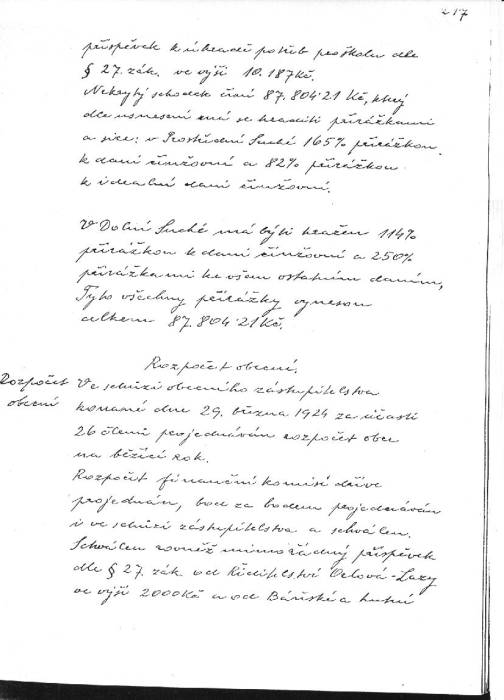 217
příspěvek k úhradě potřeb pro školu dle
§ 27. zák. ve výši 10.187 Kč.
Nekrytý schodek činí 87.804·21 Kč, který
dle usnesení má se hraditi přirážkami
a sice: v Prostřední Suché 165% přirážkou
k dani činžovní a 82% přirážkou
k ideální dani činžovní.
V Dolní Suché má býti hražen 114%
přirážkou k dani činžovní a 250%
přirážkami ke všem ostatním daním,
Tyto všechny přirážky vynesou
celkem 87.804·21 Kč.
Rozpočet obecní.
Rozpočet
obecní
Ve schůzi obecního zastupitelstva
konané dne 29. března 1924 za účasti
26 členů projednáván rozpočet obce
na běžící rok.
Rozpočet finanční komisí dříve
projednán, bod za bodem projednáván
i ve schůzi zastupitelstva a schválen.
Schválen rovněž mimořádný příspěvek
dle § 27. zák. od Ředitelství Orlová-Lazy
ve výši 2000 Kč a od Báňské a hutní